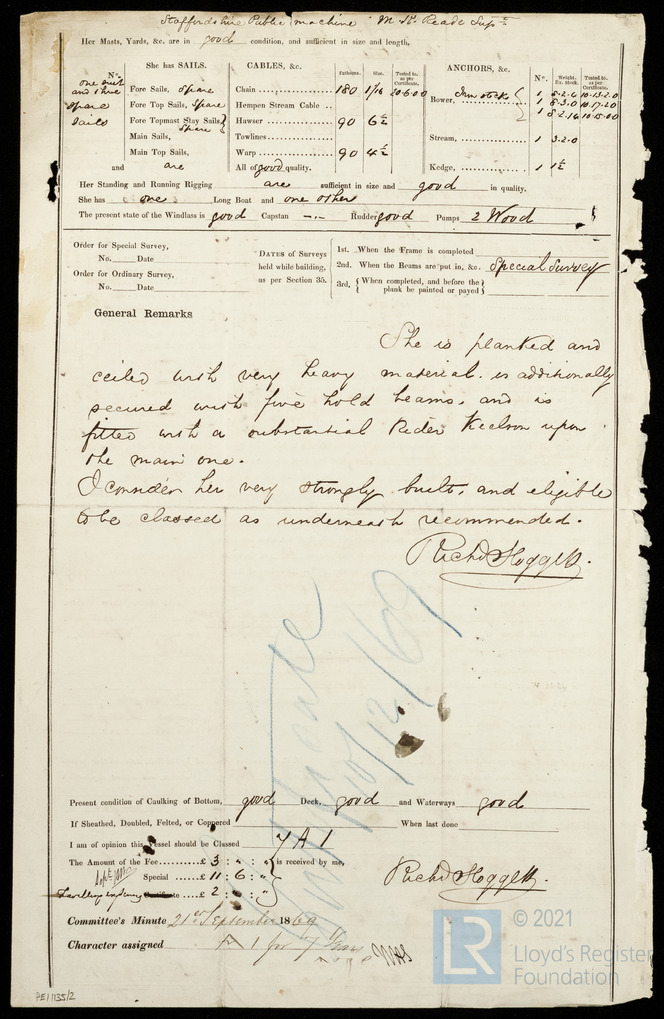 Staffordshire Public machine M St. Reade Supt
Her Masts, Yards, &c. are in good condition, and sufficient in size and length,
She has SAILS.
N°.
one suit
and three
spare
sails
Fore Sails, Spare
Fore Top Sails, Spare
Fore Topmast Stay Sails,
Spare
Main Sails,
Main Top Sails,
and are
CABLES, &c. Fathoms. Size. Tested to as per Certificate.
Chain 180 1 1/16 20.6.00
Hempen Stream Cable
Hawser 90 6½
Towlines
Warp 90 4½
All of good quality.
ANCHORS, &c. N°. Weight. Ex. Stock. Tested to as per Certificate.
Iron stocks
Bower, 1 8.2.6 10.13.2.0
1 8.3.0 10.17.20
1 8.2.14 10.15.00
Stream, 1 3.2.0
Kedge, 1 1½
Her Standing and Running Rigging are sufficient in size and good in quality.
She has one Long Boat and one other
The present state of the Windlass is good Capstan -.- Rudder good Pumps 2 Wood
Order for Special Survey,
No. Date
Order for Ordinary Survey,
No. Date
DATES of Surveys
held while building,
as per Section 35.
1st. When the Frame is completed
2nd. When the Beams are put in, &c. Special Survey
3rd, { When completed, and before the
plank be painted or payed }
General Remarks
She is planked and
ceiled with very heavy material. is additionally
secured with five hold beams. and is
fitted with a substantial Rider Keelson upon
the main one.
I consider her very strongly built, and eligible
to be classed as underneath recommended.
Richd Hoggett.
10/12/69
Present condition of Caulking of Bottom, good Deck, good and Waterways good
If Sheathed, Doubled, Felted, or Coppered When last done
I am of opinion this Vessel should be Classed 7 A 1
The Amount of the Fee £ 3 : " : " is received by me,
Special £ 11 : 6 : "
Travelling expenses Certificate £ 2 : " : "
Richd Hoggett.
Committee's Minute 21st September 1869
Character assigned A 1 for 7 Years
PE1135/2
LR
© 2021
Lloyd's Register
Foundation